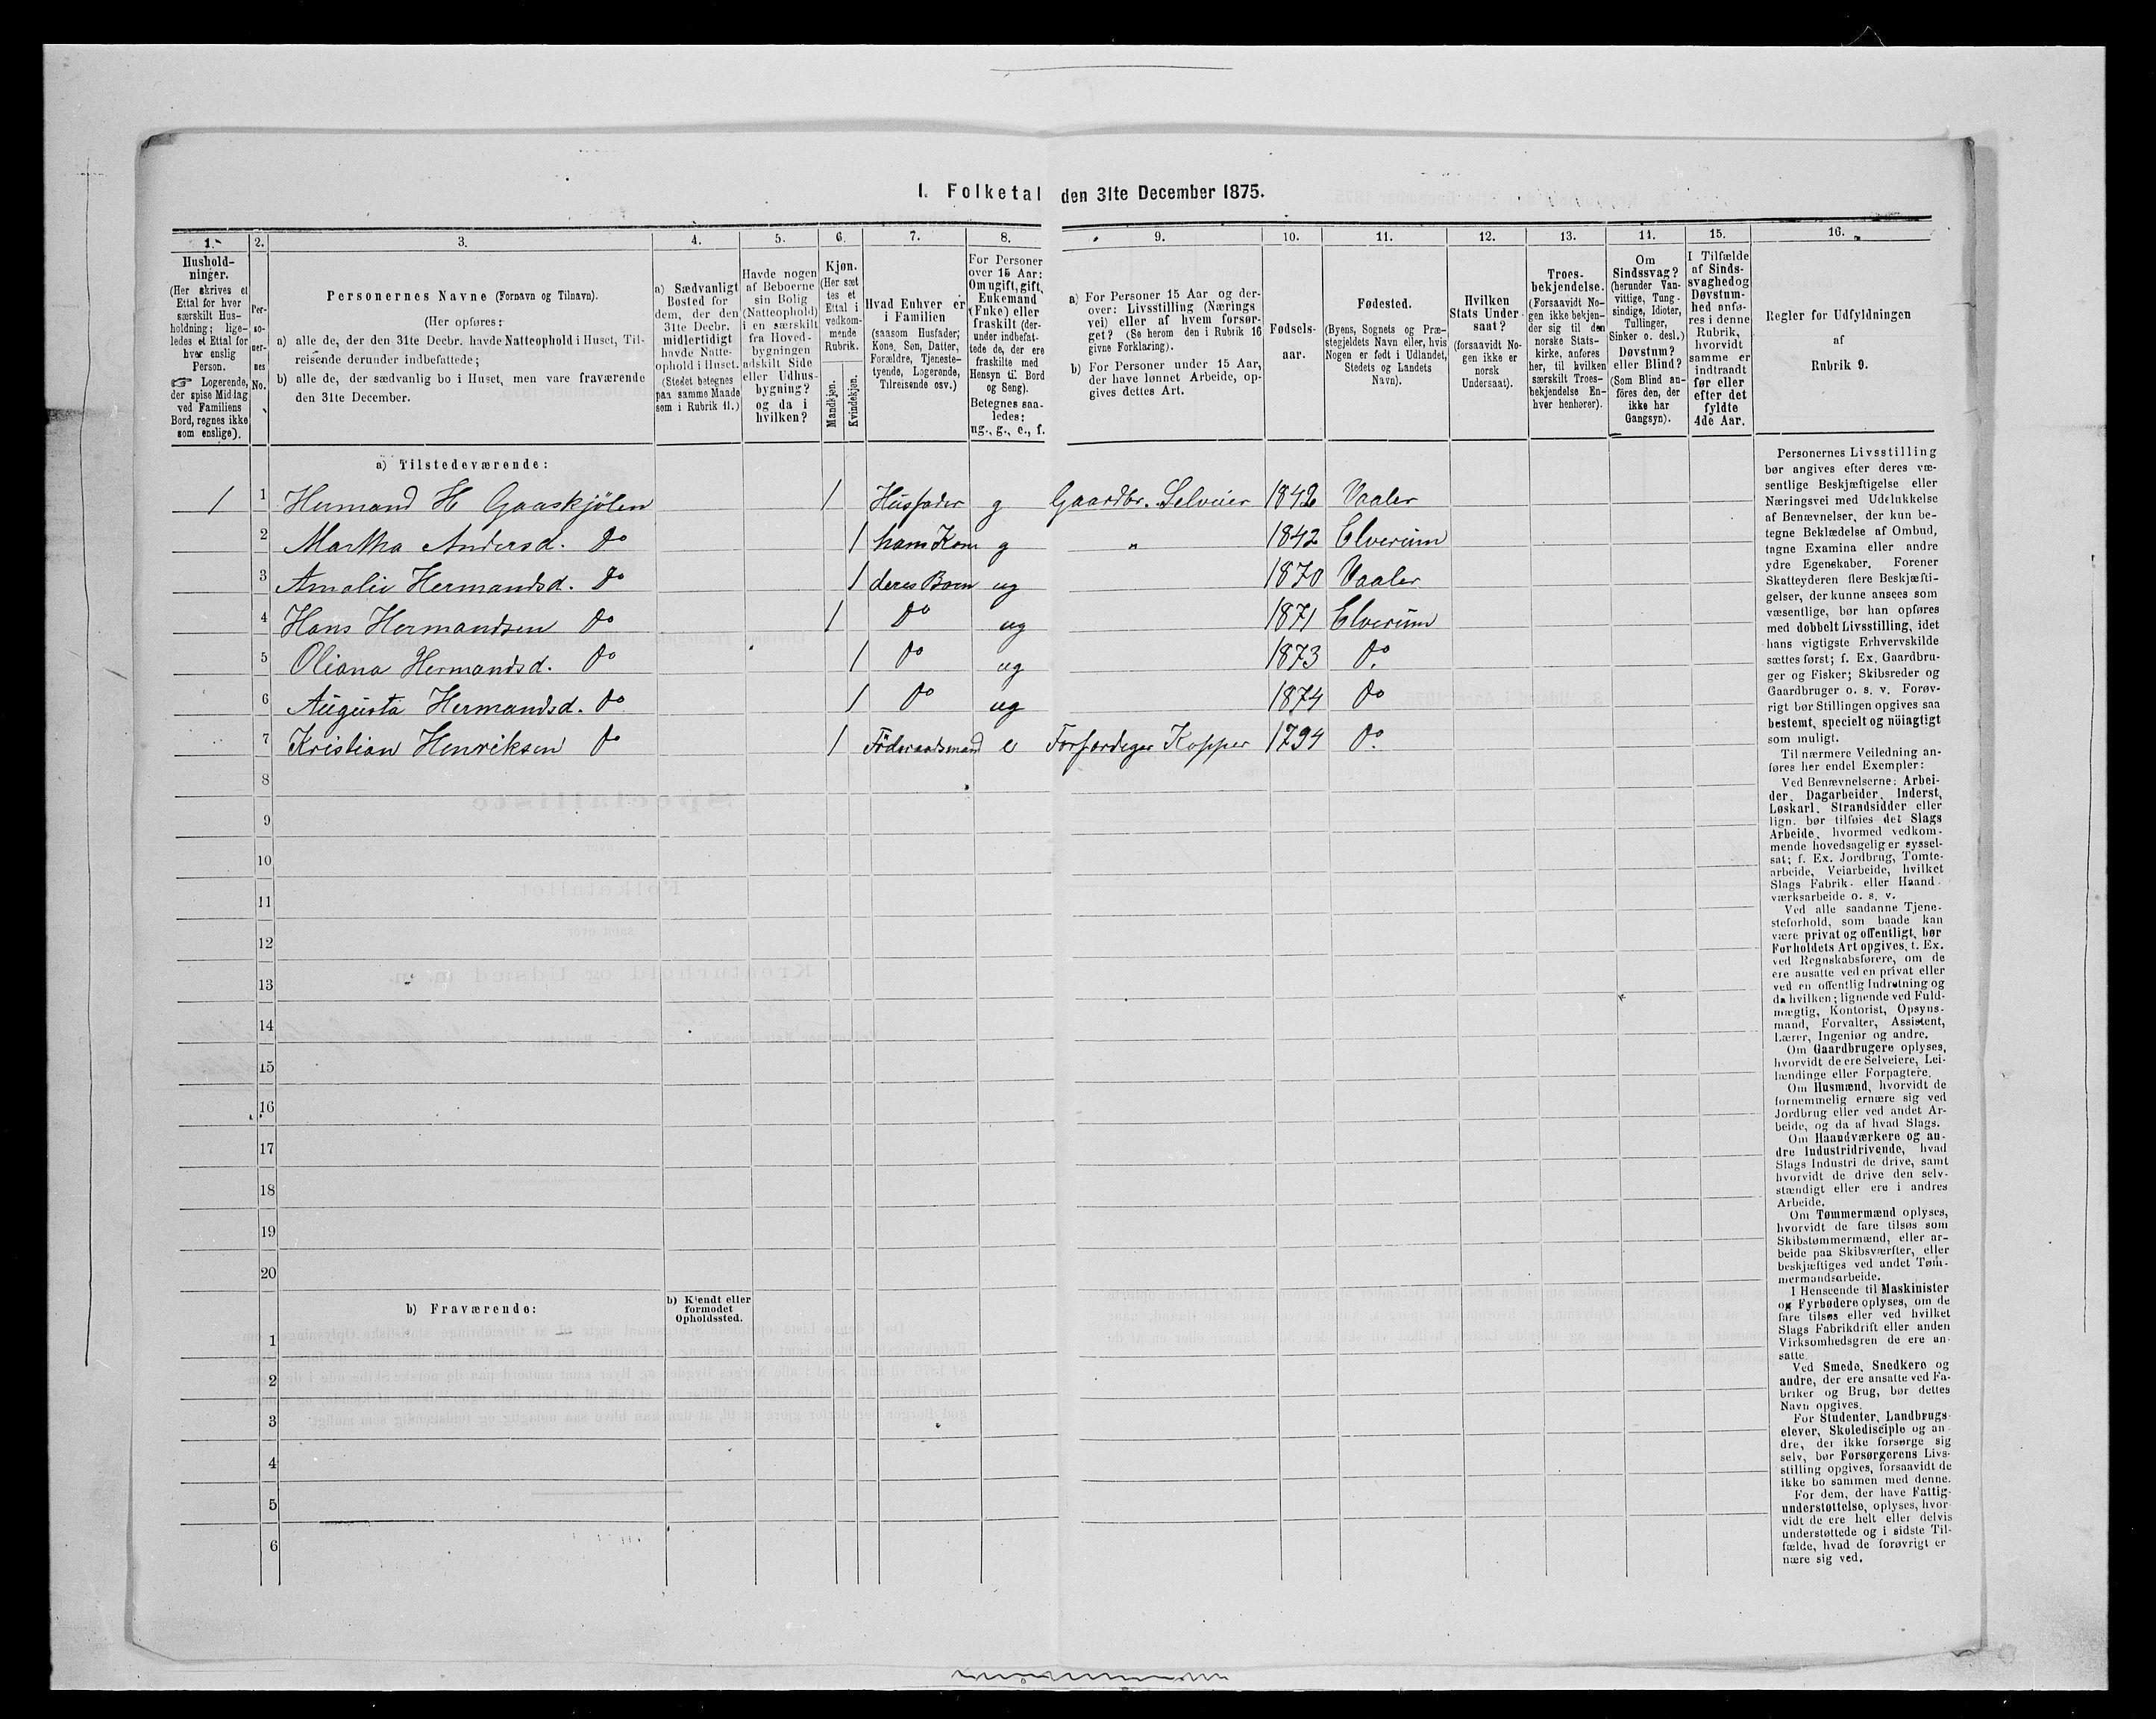 I. Folketal den 31te December 1875.
1. 2. 3. 4. 5. 6. 7. 8. 9. 10. 11. 12. 13. 14. 15. 16.
Hushold-
ninger.
(Her skrives et
Ettal for hver
særskilt Hus-
holdning; lige-
ledes et Ettal for
hver enslig
Person.
☞ Logerende,
der spise Middag
ved Familiens
Bord, regnes ikke
som enslige).
Per-
so-
ner-
nes
No.
Personernes Navne (Fornavn og Tilnavn).
(Her opføres:
a) alle de, der den 31te Decbr. havde Natteophold i Huset, Til-
reisende derunder indbefattede;
b) alle de, der sædvanlig bo i Huset, men vare fraværende
den 31te December.
a) Sædvanligt
Bosted for
dem, der den
31te Decbr.
midlertidigt
havde Natte-
ophold i Huset.
(Stedet betegnes
paa samme Maade
som i Rubrik 11.)
Havde nogen
af Beboerne
sin Bolig
(Natteophold)
i en særskilt
fra Hoved-
bygningen
adskilt Side
eller Udhus-
bygning?
og da i
hvilken?
Kjøn.
(Her sæt
tes et
Ettal i
vedkom-
mende
Rubrik.
Mandkjøn.
Kvindekjøn.
Hvad Enhver er
i Familien
(saasom Husfader,
Kone, Søn, Datter,
Forældre, Tjeneste-
tyende, Logerende,
Tilreisende osv.)
For Personer
over 15 Aar:
Om ugift, gift,
Enkemand
(Enke) eller
fraskilt (der-
under indbefat-
tede de, der ere
fraskilte med
Hensyn til Bord
og Seng).
Betegnes saa-
ledes:
ug., g., e., f.
a) For Personer 15 Aar og der-
over: Livsstilling (Nærings
vei) eller af hvem forsør-
get? (Se herom den i Rubrik 16
givne Forklaring).
b) For Personer under 15 Aar,
der have lønnet Arbeide, op-
gives dettes Art.
Fødsels-
aar.
Fødested.
(Byens, Sognets og Præ-
stegjeldets Navn eller, hvis
Nogen er født i Udlandet,
Stedets og Landets
Navn).
Hvilken
Stats Under-
saat?
(forsaavidt No-
gen ikke er
norsk
Undersaat).
Troes-
bekjendelse.
(Forsaavidt No-
gen ikke bekjen-
der sig til den
norske Stats-
kirke, anføres
her, til hvilken
særskilt Troes-
bekjendelse En-
hver henhører).
Om
Sindssvag?
(herunder Van-
vittige, Tung-
sindige, Idioter,
Tullinger,
Sinker o. desl.)
Døvstum?
eller Blind?
(Som Blind an-
føres den, der
ikke har
Gangsyn).
I Tilfælde
af Sinds-
svaghed og
Døvstum-
hed anfø-
res i denne
Rubrik,
hvorvidt
samme er
indtraadt
før eller
efter det
fyldte
4de Aar.
Regler for Udfyldningen
af
Rubrik 9.
a) Tilstedeværende:
1 1 Hermand H Gaaskjölen 1 Husfader g Gaardbr. Selveier 1842 Vaaler
2 Martha Andersd. Do 1 hans Kone g " 1842 Elverum
3 Amalie Hermandsd. Do 1 deres Barn ug 1870 Vaaler
4 Hans Hermandsen Do 1 Do ug 1871 Elverum
5 Oliana Hermandsd. Do 1 Do ug 1873 Do.
6 Augusta Hermandsd. Do 1 Do ug 1874 Do
7 Kristian Henriksen Do 1 Föderaadsmand e Forfærdiger Kopper 1794 Do.
8
9
10
11
12
13
14
15
16
17
18
19
20
b) Fraværende:
b) Kjendt eller
formodet
Opholdssted.
1
2
3
4
5
6
Personernes Livsstilling
bør angives efter deres væ-
sentlige Beskjæftigelse eller
Næringsvei med Udelukkelse
af Benævnelser, der kun be-
tegne Beklædelse af Ombud,
tagne Examina eller andre
ydre Egenskaber. Forener
Skatteyderen flere Beskjæfti-
gelser, der kunne ansees som
væsentlige, bør han opføres
med dobbelt Livsstilling, idet
hans vigtigste Erhvervskilde
sættes først; f. Ex. Gaardbru-
ger og Fisker; Skibsreder og
Gaardbruger o. s. v. Forøv-
rigt bør Stillingen opgives saa
bestemt, specielt og nöiagtigt
som muligt.
Til nærmere Veiledning an-
føres her endel Exempler:
Ved Benævnelserne: Arbei-
der, Dagarbeider, Inderst,
Løskarl, Strandsidder eller
lign. bør tilføies det Slags
Arbeide, hvormed vedkom-
mende hovedsagelig er syssel-
sat; f. Ex. Jordbrug, Tomte-
arbeide, Veiarbeide, hvilket
Slags Fabrik- eller Haand-
værksarbeide o. s. v.
Ved alle saadanne Tjene-
steforhold, som baade kan
være privat og offentligt, bør
Forholdets Art opgives, t. Ex.
ved Regnskabsførere, om de
ere ansatte ved en privat eller
ved en offentlig Indretning og
da hvilken; lignende ved Fuld-
mægtig, Kontorist, Opsyns-
mand, Forvalter, Assistent,
Lærer, Ingeniør og andre.
Om Gaardbrugere oplyses,
hvorvidt de ere Selveiere, Lei-
lændinge eller Forpagtere.
Om Husmænd, hvorvidt de
fornemmelig ernære sig ved
Jordbrug eller ved andet Ar-
beide, og da af hvad Slags.
Om Haandværkere og an-
dre Industridrivende, hvad
Slags Industri de drive, samt
hvorvidt de drive den selv-
stændigt eller ere i andres
Arbeide.
Om Tømmermænd oplyses,
hvorvidt de fare tilsøs som
Skibstømmermænd, eller ar-
beide paa Skibsværfter, eller
beskjæftiges ved andet Tøm-
mermandsarbeide.
I Henseende til Maskinister
og Fyrbødere oplyses, om de
fare tilsøs eller ved hvilket
Slags Fabrikdrift eller anden
Virksomhedsgren de ere an-
satte.
Ved Smede, Snedkere og
andre, der ere ansatte ved Fa-
briker og Brug, bør dettes
Navn opgives.
For Studenter, Landbrugs-
elever, Skoledisciple og an-
dre, der ikke forsørge sig
selv, bør Forsørgerens Livs-
stilling opgives, forsaavidt de
ikke bo sammen med denne.
For dem, der have Fattig-
understøttelse, oplyses, hvor-
vidt de ere helt eller delvis
understøttede og i sidste Til-
fælde, hvad de forøvrigt er
nære sig ved.